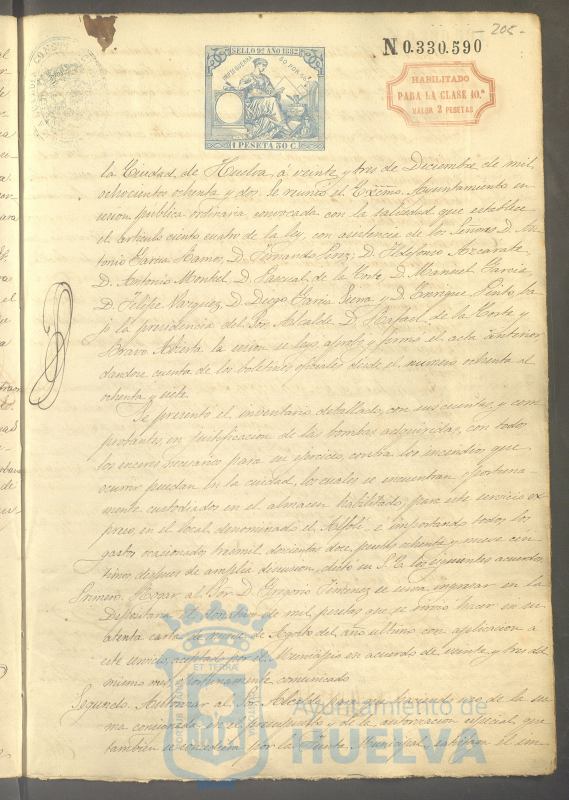 - 205 -
SELLO 9º AÑO 1882
IMPTO GUERRA 50 POR 100
1 PESETA 50 C.
N 0.330.590
HABILITADO
PARA LA CLASE 10.ª
VALOR 2 PESETAS
la Ciudad de Huelva, á veinte y tres de Diciembre de mil
ochocientos ochenta y dos se reunió el Excmo. Ayuntamiento en
sesion pública ordinaria convocada con la
el articulo ciento cuatro de la ley, con asistencia de los Señores D. An
tonio Garcia Ramos, D. Fernando Perez, D. Ildefonso Azcárate
D. Antonio Montiel, D. Pascual de la Corte, D. Manuel Garcia
D. Felipe Vazquez, D. Diego Garia y D. Enrique Pinto, ba
jo la presidencia del Sor. Alcalde D. Rafael de la Corte y
Bravo. Abierta la sesion se leyó, aprobó y firmó el acta anterior
dandose cuenta de los boletines oficiales desde el numero ochenta al
ochenta y siete.
Se presentó el inventario detallado, con sus cuentas, y com
probantes, en justificacion de las bombas adquiridas, con todos
los enceres necesarios para su ejercicio, contra los incendios que
ocurrir puedan en la ciudad, los cuales se encuentran oportuna-
mente custodiados en el almacen habilitado, para este servicio ex
preso, en el local denominado el Alfolí é importando todos los
gastos ocasionados, tres mil doscientas doce, pesetas ochenta y nueve cen
timos despues de amplia discusion, dictó su S. E. los siguientes acuerdos
Primero. Rogar al Sor. D. Gregorio Jimenez se sirva ingresar en la
Depositaria el donativo de mil pesetas que se sirvió hacer en su
atenta carta de nueve de Agosto del año ultimo con aplicacion a
este servicio, aceptado por el Municipio en acuerdo de veinte y tres del
mismo mes, oportunamente comunicado
Segundo. Autorizar al Sor. Alcalde para que haciendo uso de la su
ma consignada en el presupuesto y de la autorizacion especial que
tambien se concediera por la Junta Municipal, satisfaga el im
ET TERRÆ
PORTUS MARIS
Ayuntamiento de
HUELVA